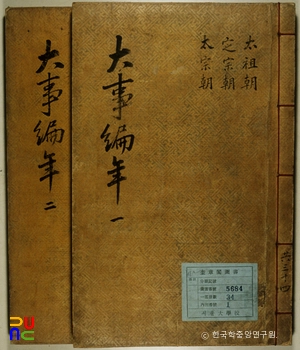 太祖朝
定宗朝
太宗朝
大事編年 一
大事編年 二
5684
24
1
한국학중앙연구원